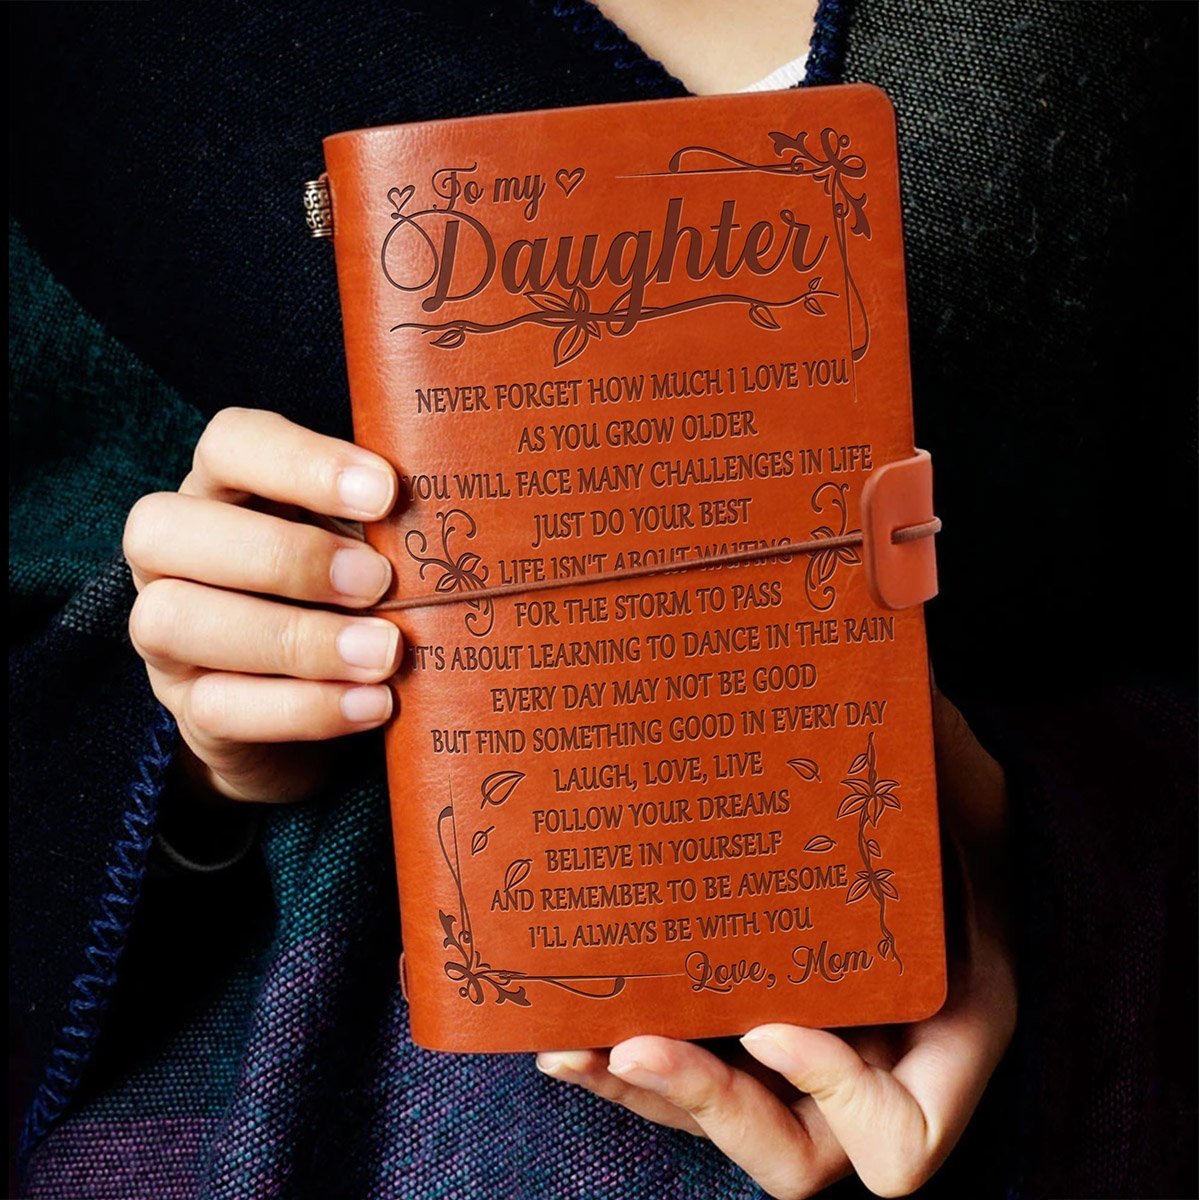 To my
Daughter
NEVER FORGET HOW MUCH I LOVE YOU
AS YOU GROW OLDER
YOU WILL FACE MANY CHALLENGES IN LIFE
JUST DO YOUR BEST
LIFE ISN'T ABOUT WAITING
FOR THE STORM TO PASS
IT'S ABOUT LEARNING TO DANCE IN THE RAIN
EVERY DAY MAY NOT BE GOOD
BUT FIND SOMETHING GOOD IN EVERY DAY
LAUGH, LOVE, LIVE
FOLLOW YOUR DREAMS
BELIEVE IN YOURSELF
AND REMEMBER TO BE AWESOME
I'LL ALWAYS BE WITH YOU
Love, Mom